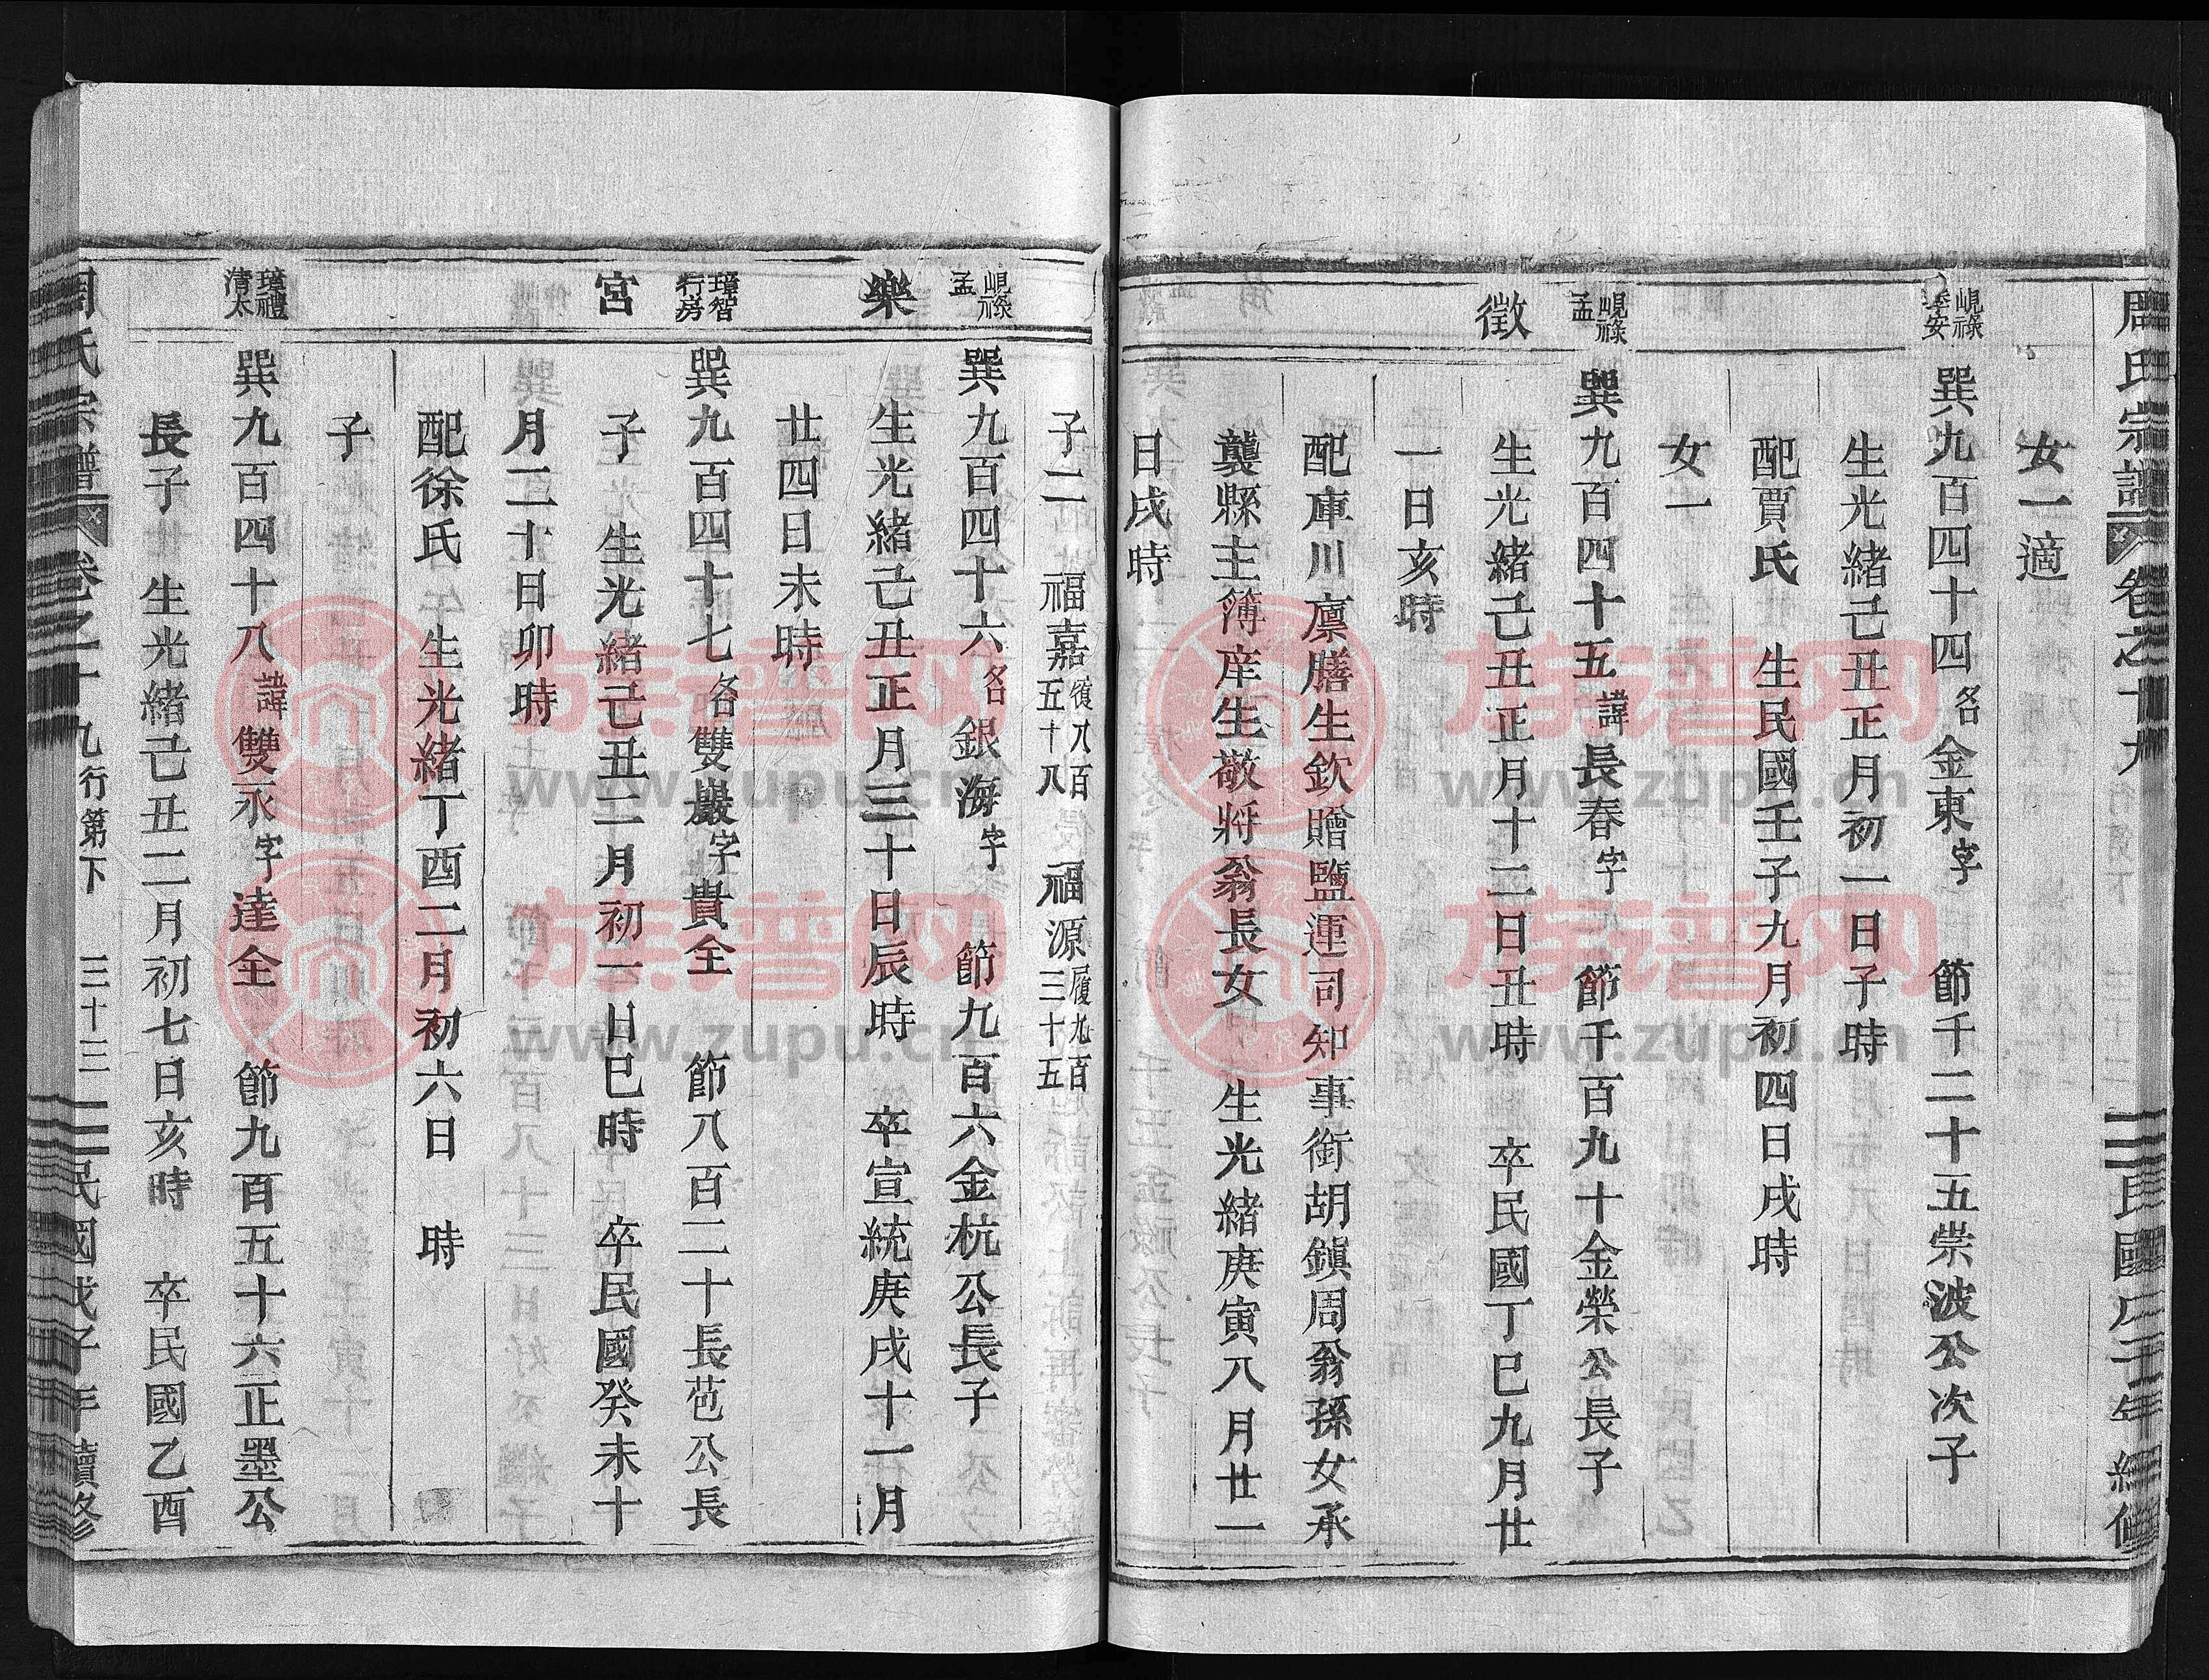 周氏宗譜 卷之十九 民國戊子年續修
女一適
峴祿季安
巽九百四十四 名金東字 節千二十五崇波公次子
生光緒己丑正月初一日子時
配賈氏 生民國壬子九月初四日戌時
女一
峴祿孟
巽九百四十五 諱長春字 節千百九十金榮公長子
徵
生光緒己丑正月十二日丑時 卒民國丁巳九月廿
一日亥時
配庫川廩膳生欽贈鹽運司知事銜胡鎮周翁孫女承
襲縣主簿庠生敬將翁長女 生光緒庚寅八月廿一
日戌時
子二 福嘉履八百五十八 福源履九百三十五
峴祿孟
巽九百四十六 名銀海字 節九百六金杭公長子
樂
生光緒己丑正月三十日辰時 卒宣統庚戌十一月
廿四日未時
璋智行房
巽九百四十七 名雙巖字貴全 節八百二十長芑公長
宮
子 生光緒己丑二月初一日巳時 卒民國癸未十
月二十日卯時
配徐氏 生光緒丁酉二月初六日 時
子
璋禮清太
巽九百四十八 諱雙承字達全 節九百五十六正墨公
長子 生光緒己丑二月初七日亥時 卒民國乙酉
周氏宗譜 卷之十九 行第下 三十三 民國戊子年續修
族譜网
www.zupu.cn
族譜网
www.zupu.cn
族譜网
www.zupu.cn
族譜网
www.zupu.cn